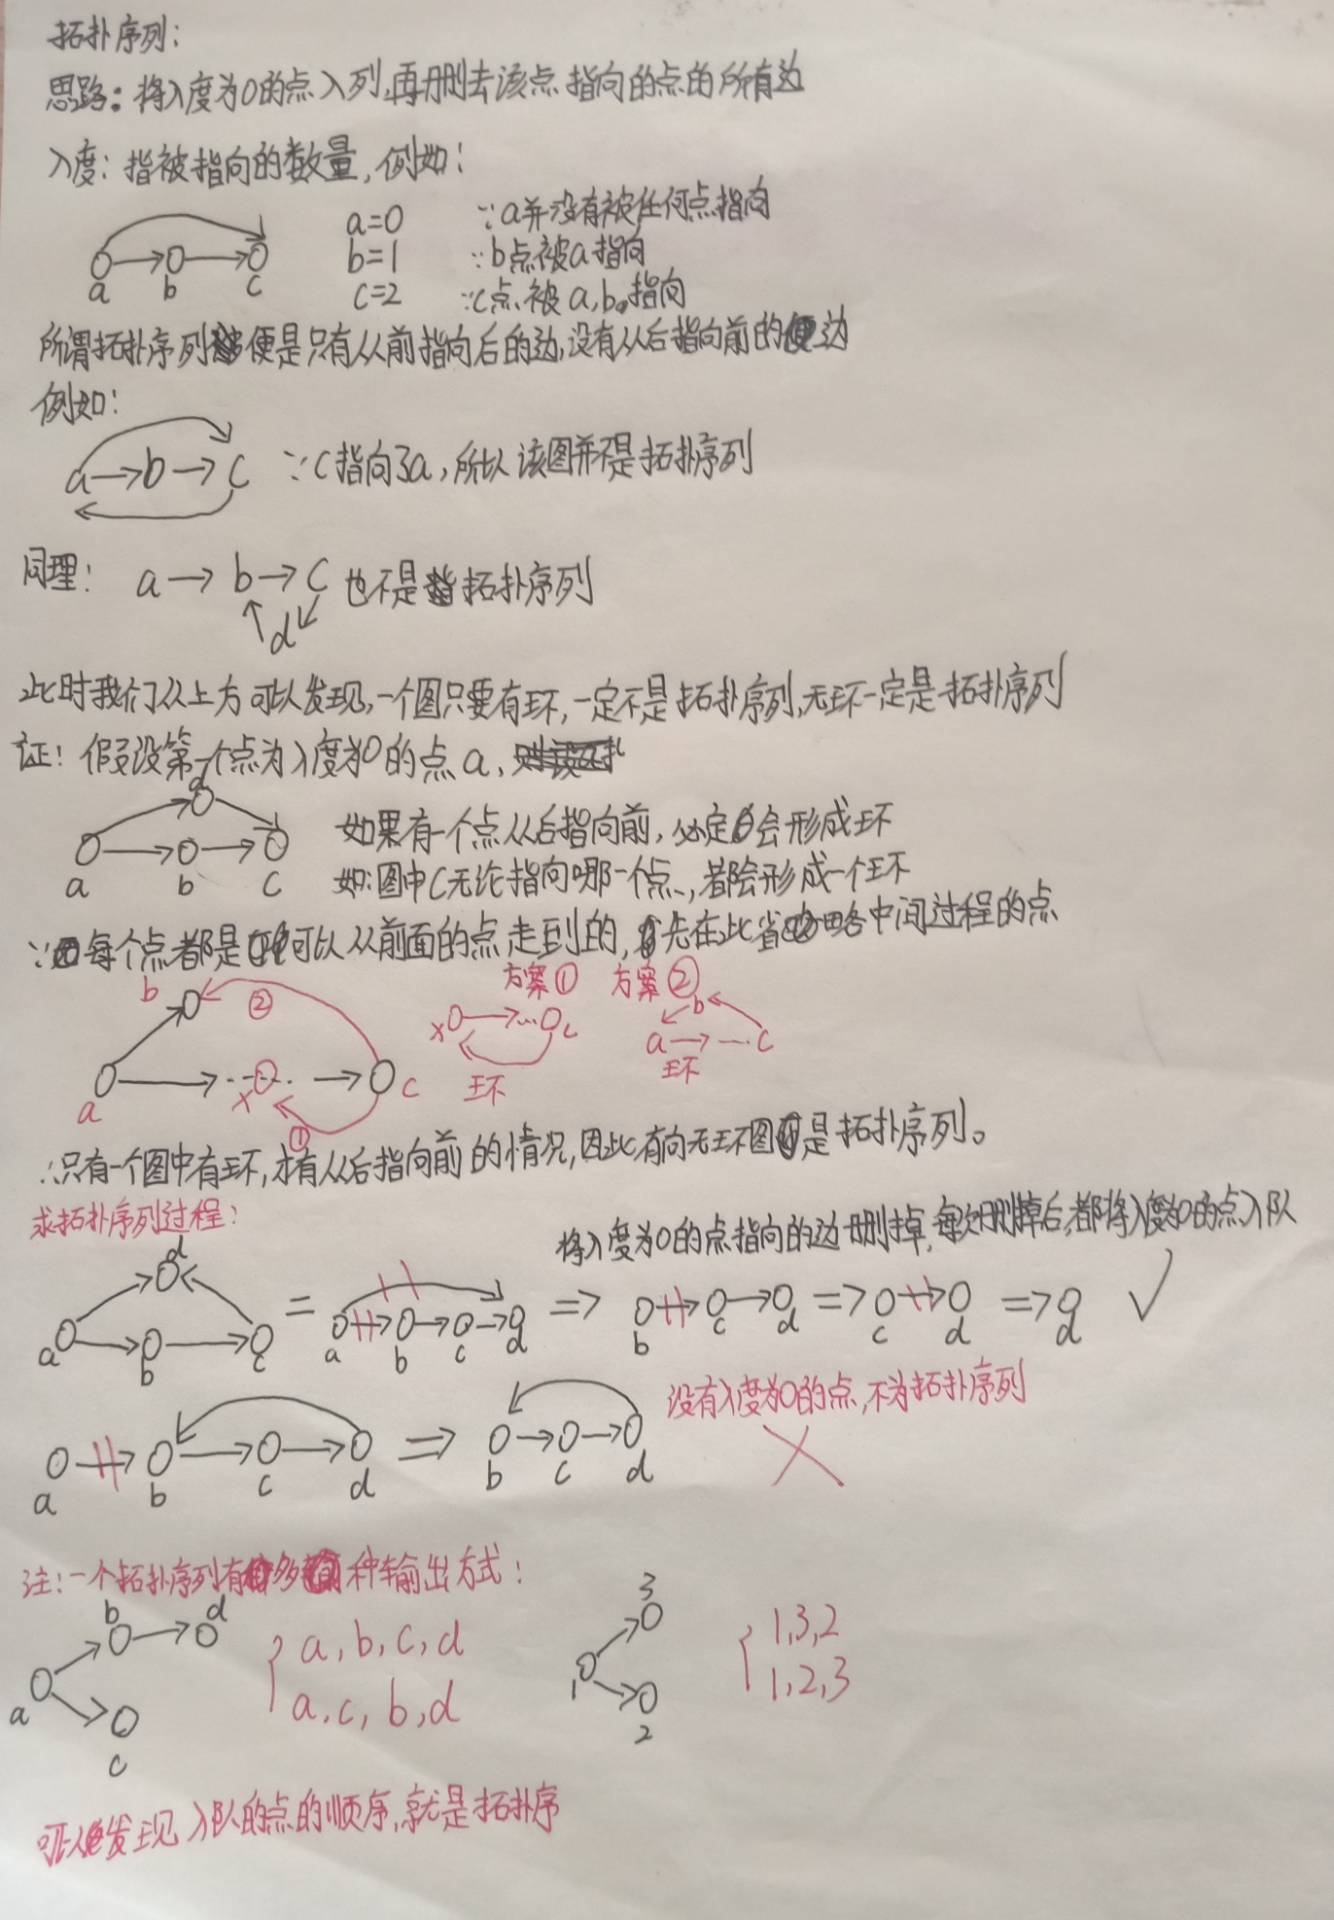 拓扑序列:
思路:将入度为0的点入列,再删去该点指向的点的所有边
入度:指被指向的数量,例如:
a=0 ∵a并没有被任何点指向
b=1 ∵b点被a指向
c=2 ∵c点被a,b指向
a b c
所谓拓扑序列便是只有从前指向后的边,没有从后指向前的边
例如:
a→b→c ∵c指向了a,所以该图并不是拓扑序列
同理: a→b→c 也不是拓扑序列
d
此时我们从上方可以发现,一个图只要有环,一定不是拓扑序列,无环一定是拓扑序列
证:假设第一个点为入度为0的点a,
d
如果有一个点从后指向前,必定会形成环
a b c
如:图中c无论指向哪一个点,都会形成一个环
∵每个点都是可以从前面的点走到的,先在此省略中间过程的点
b ② 方案① 方案②
x→...c b
a→...c
环 环
a x c
①
∴只有一个图中有环,才有从后指向前的情况,因此有向无环图是拓扑序列。
求拓扑序列过程:
将入度为0的点指向的边删掉,每次删掉后,都将入度为0的点入队
d
a b c = a b c d ⇒ b c d ⇒ c d ⇒ d ✓
没有入度为0的点,不为拓扑序列
a b c d ⇒ b c d ×
注:一个拓扑序列有多种输出方式:
b d
a c
{ a,b,c,d
a,c,b,d
3
1
2
{ 1,3,2
1,2,3
可以发现入队的点的顺序,就是拓扑序